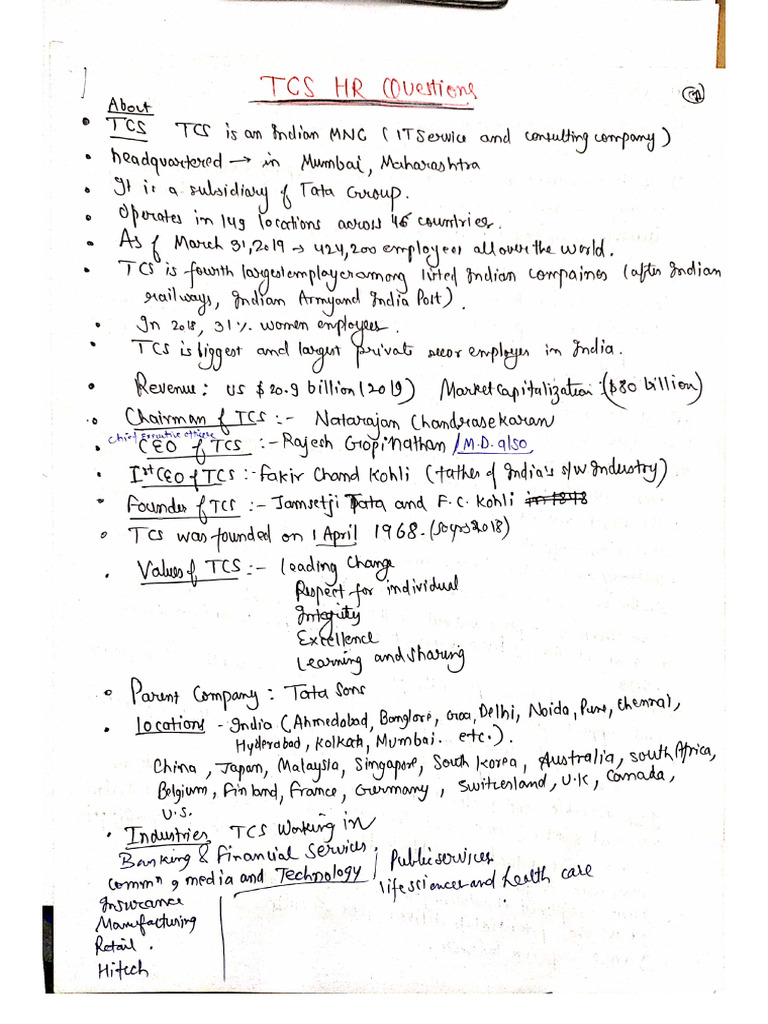 TCS HR Questions
About
• TCS TCS is an Indian MNC (IT Service and consulting company)
• headquartered → in Mumbai, Maharashtra
• It is a subsidiary of Tata Group.
• Operates in 149 locations across 46 countries.
• As of March 31, 2019 → 424,200 employees all over the world.
• TCS is fourth largest employer among listed Indian compaines (after Indian
railways, Indian Army and India Post).
• In 2018, 31% women employees.
• TCS is biggest and largest private secor employer in India.
• Revenue: US $20.9 billion (2019) Market Capitalization: ($80 billion)
• Chairman of TCS :- Natarajan Chandrasekaran
chief Executive officer
• CEO of TCS :- Rajesh Gopinathan / M.D. also
• Ist CEO of TCS :- Fakir Chand Kohli (father of India's s/w Industry)
• Founder of TCS :- Jamsetji Tata and F.C. Kohli
• TCS was founded on 1 April 1968. (50yrs 2018)
• Values of TCS :- Leading Change
Respect for individual
Integrity
Excellence
Learning and sharing
• Parent Company : Tata Sons
• Locations - India (Ahmedabad, Banglore, Goa, Delhi, Noida, Pune, Chennai,
Hyderabad, Kolkata, Mumbai. etc.).
China, Japan, Malaysia, Singapore, South Korea, Australia, South Africa,
Belgium, Finland, France, Germany, Switzerland, U.K, Canada,
U.S.
• Industries TCS Working in
Banking & Financial Services,
Commn, media and Technology
Insurance
Manufacturing
Retail.
Hitech
Public services
life sciences and health care